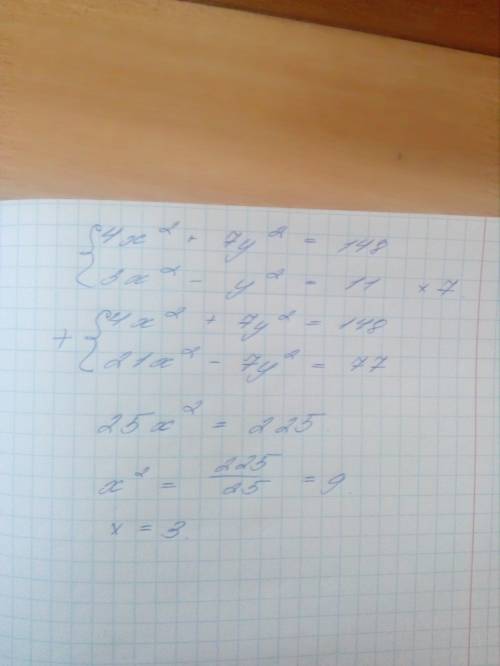 {4x² + 7y² = 148
{3x² - y² = 11 × 7
+ {4x² + 7y² = 148
{21x² - 7y² = 77
25x² = 225
x² = 225/25 = 9
x = 3